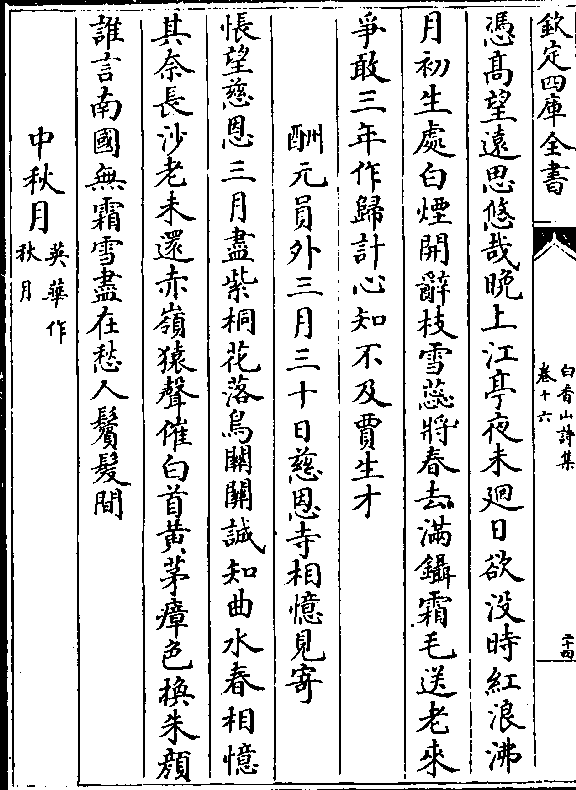 欽定四庫全書
白香山詩集
卷十六
二十四
憑髙望遠思悠哉晩上江亭夜未廻日欲没時紅浪沸
月初生處白煙開辭枝雪蕊將春去滿鑷霜毛送老來
爭敢三年作歸計心知不及賈生才
酬元員外三月三十日慈恩寺相憶見寄
悵望慈恩三月盡紫桐花落鳥關關誠知曲水春相憶
其奈長沙老未還赤嶺猿聲催白首黄茅瘴色換朱顔
誰言南國無霜雪盡在愁人鬢髪間
中秋月英華作
秋月